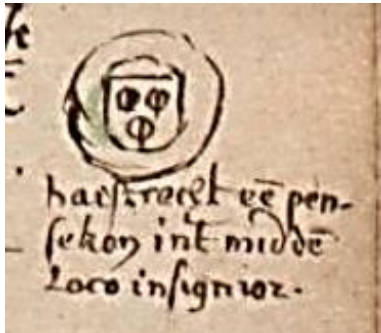 haestrecht eē pen-
sekon int middē
Loco insignior.